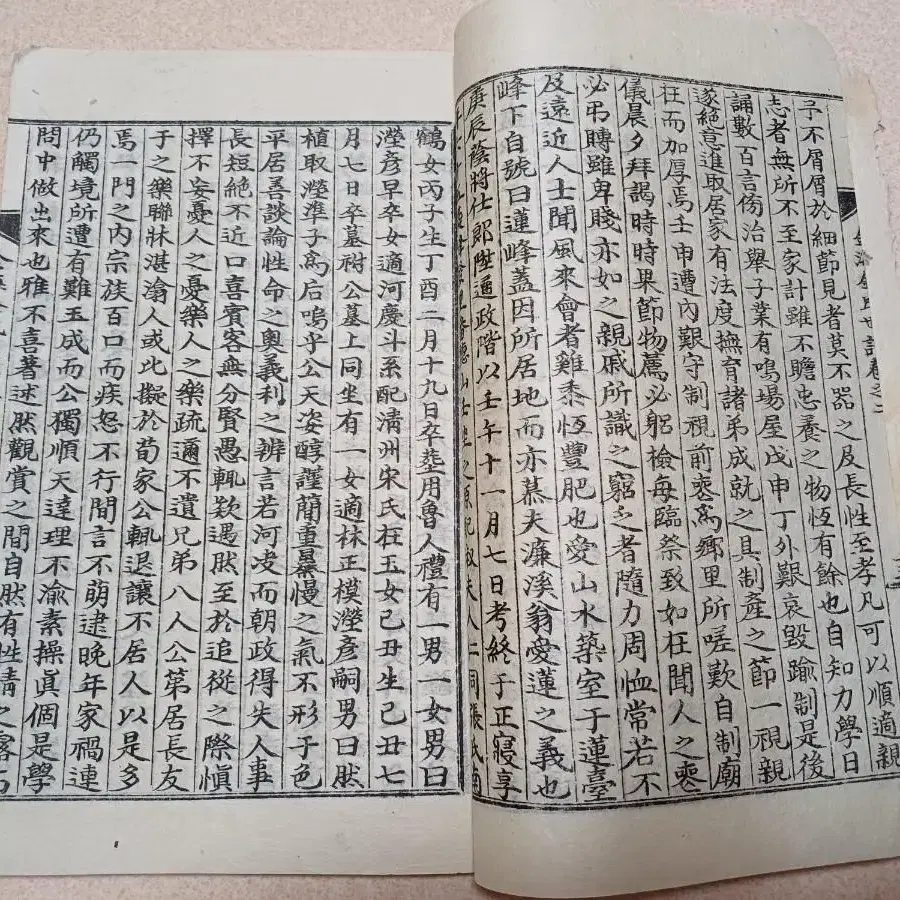 子不屑屑於細節見者莫不器之及長性至孝凡可以順適親
志者無所不至家計雖不贍忠養之物恆有餘也自知力學日
誦數百言傍治舉子業有鳴場屋戊申丁外艱哀毀踰制是後
遂絶意進取居家有法度撫育諸弟成就之具制產之節一視親
在而加厚焉壬申遭內艱守制視前喪爲鄉里所嗟歎自制廟
儀晨夕拜謁時時果節物薦必躬檢每臨祭致如在聞人之喪
必弔賻雖卑賤亦如之親戚所識之窮乏者隨力周恤常若不
及遠近人士聞風來會者雞黍恆豐肥也愛山水築室于蓮臺
峰下自號曰蓮峰蓋因所居地而亦慕夫濂溪翁愛蓮之義也
庚辰蔭將仕郞陞通政階以壬午十一月七日考終于正寢享
鶴女丙子生丁酉二月十九日卒葬用魯人禮有一男一女男曰
瀅彦早卒女適河慶斗系配淸州宋氏在玉女己丑生己丑七
月七日卒墓祔公墓上同坐有一女適林正模瀅彦嗣男曰然
植取瀅準子爲后嗚乎公天姿醇謹簡重暴慢之氣不形于色
平居善談論性命之奧義利之辨言若河凌而朝政得失人事
長短絶不近口喜賓客無分賢愚輒欵遇然至於追從之際愼
擇不妄憂人之憂樂人之樂疏邇不遺兄弟八人公第居長友
于之樂聯牀湛翕人或此擬於荀家公輒退讓不居人以是多
焉一門之內宗族百口而疾怒不行間言不萌逮晚年家禍連
仍觸境所遭有難玉成而公獨順天達理不渝素操眞個是學
問中做出來也雅不喜著述然觀賞之間自然有性情之